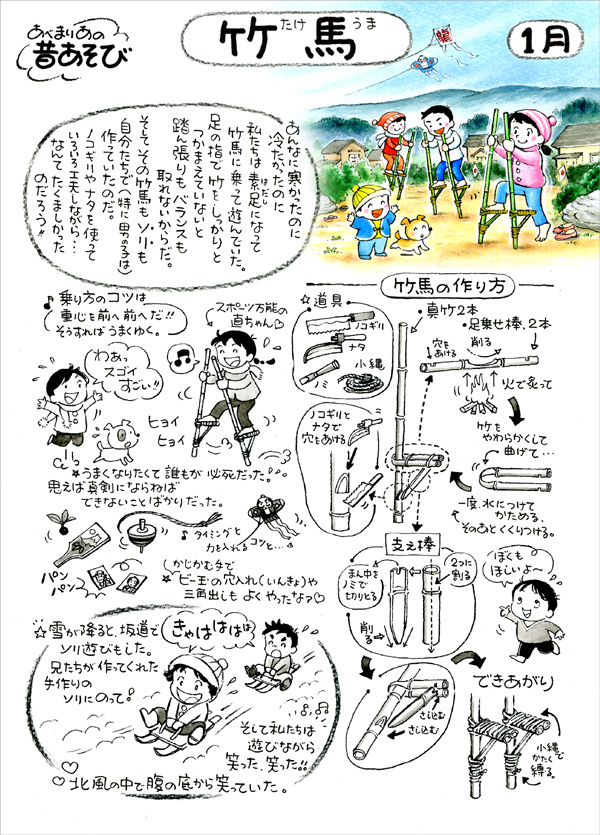 あべまりあの
昔あそび
竹馬
たけ
うま
1月
あんなに寒かったのに
冷たかったのに
私たちは素足になって
はだし
竹馬に乗って遊んでいた。
足の指で竹をしっかりと
つかまえていないと
踏ん張りもバランスも
取れないからだ。
そしてその竹馬もソリも
自分たちで(特に男の子は)
作っていたのだ。
ノコギリやナタを使って
いろいろ工夫しながら…
なんてたくましかった
のだろう!!
♪乗り方のコツは
重心を前へ前へだ!!
そうすればうまくゆく。
スポーツ万能の
直ちゃん♡
わぁっ
スゴイ
すごい!!
ヒョイ
ヒョイ
★うまくなりたくて誰もが必死だった!!
思えば真剣にならねば
できないことばかりだった。
♪タイミングと
力を入れるコツと…
パン
パン
かじかむ手で
★ビー玉の穴入れ(いんきょ)や
三角出しもよくやったなァ♡
☆雪が降ると、坂道で
ソリ遊びもした。
兄たちが作ってくれた
手作りの
ソリにのって!
きゃはははは
そして私たちは
遊びながら
笑った、笑った!!
♡北風の中で腹の底から笑っていた。
竹馬の作り方
☆道具
ノコギリ
ナタ
ノミ
小縄
・真竹2本
・足乗せ棒、2本
穴を
あける
削る
火で炙って
竹を
やわらかくして
曲げて…
一度、水につけて
かためる、
そのあとくくりつける。
ノコギリと
ナタで
穴をあける
支え棒
まん中を
ノミで
切りとる
2つに
割る
削る
ぼくも
ほしいよ〜
さし込む
さし込む
できあがり
小縄で
かたく
縛る。